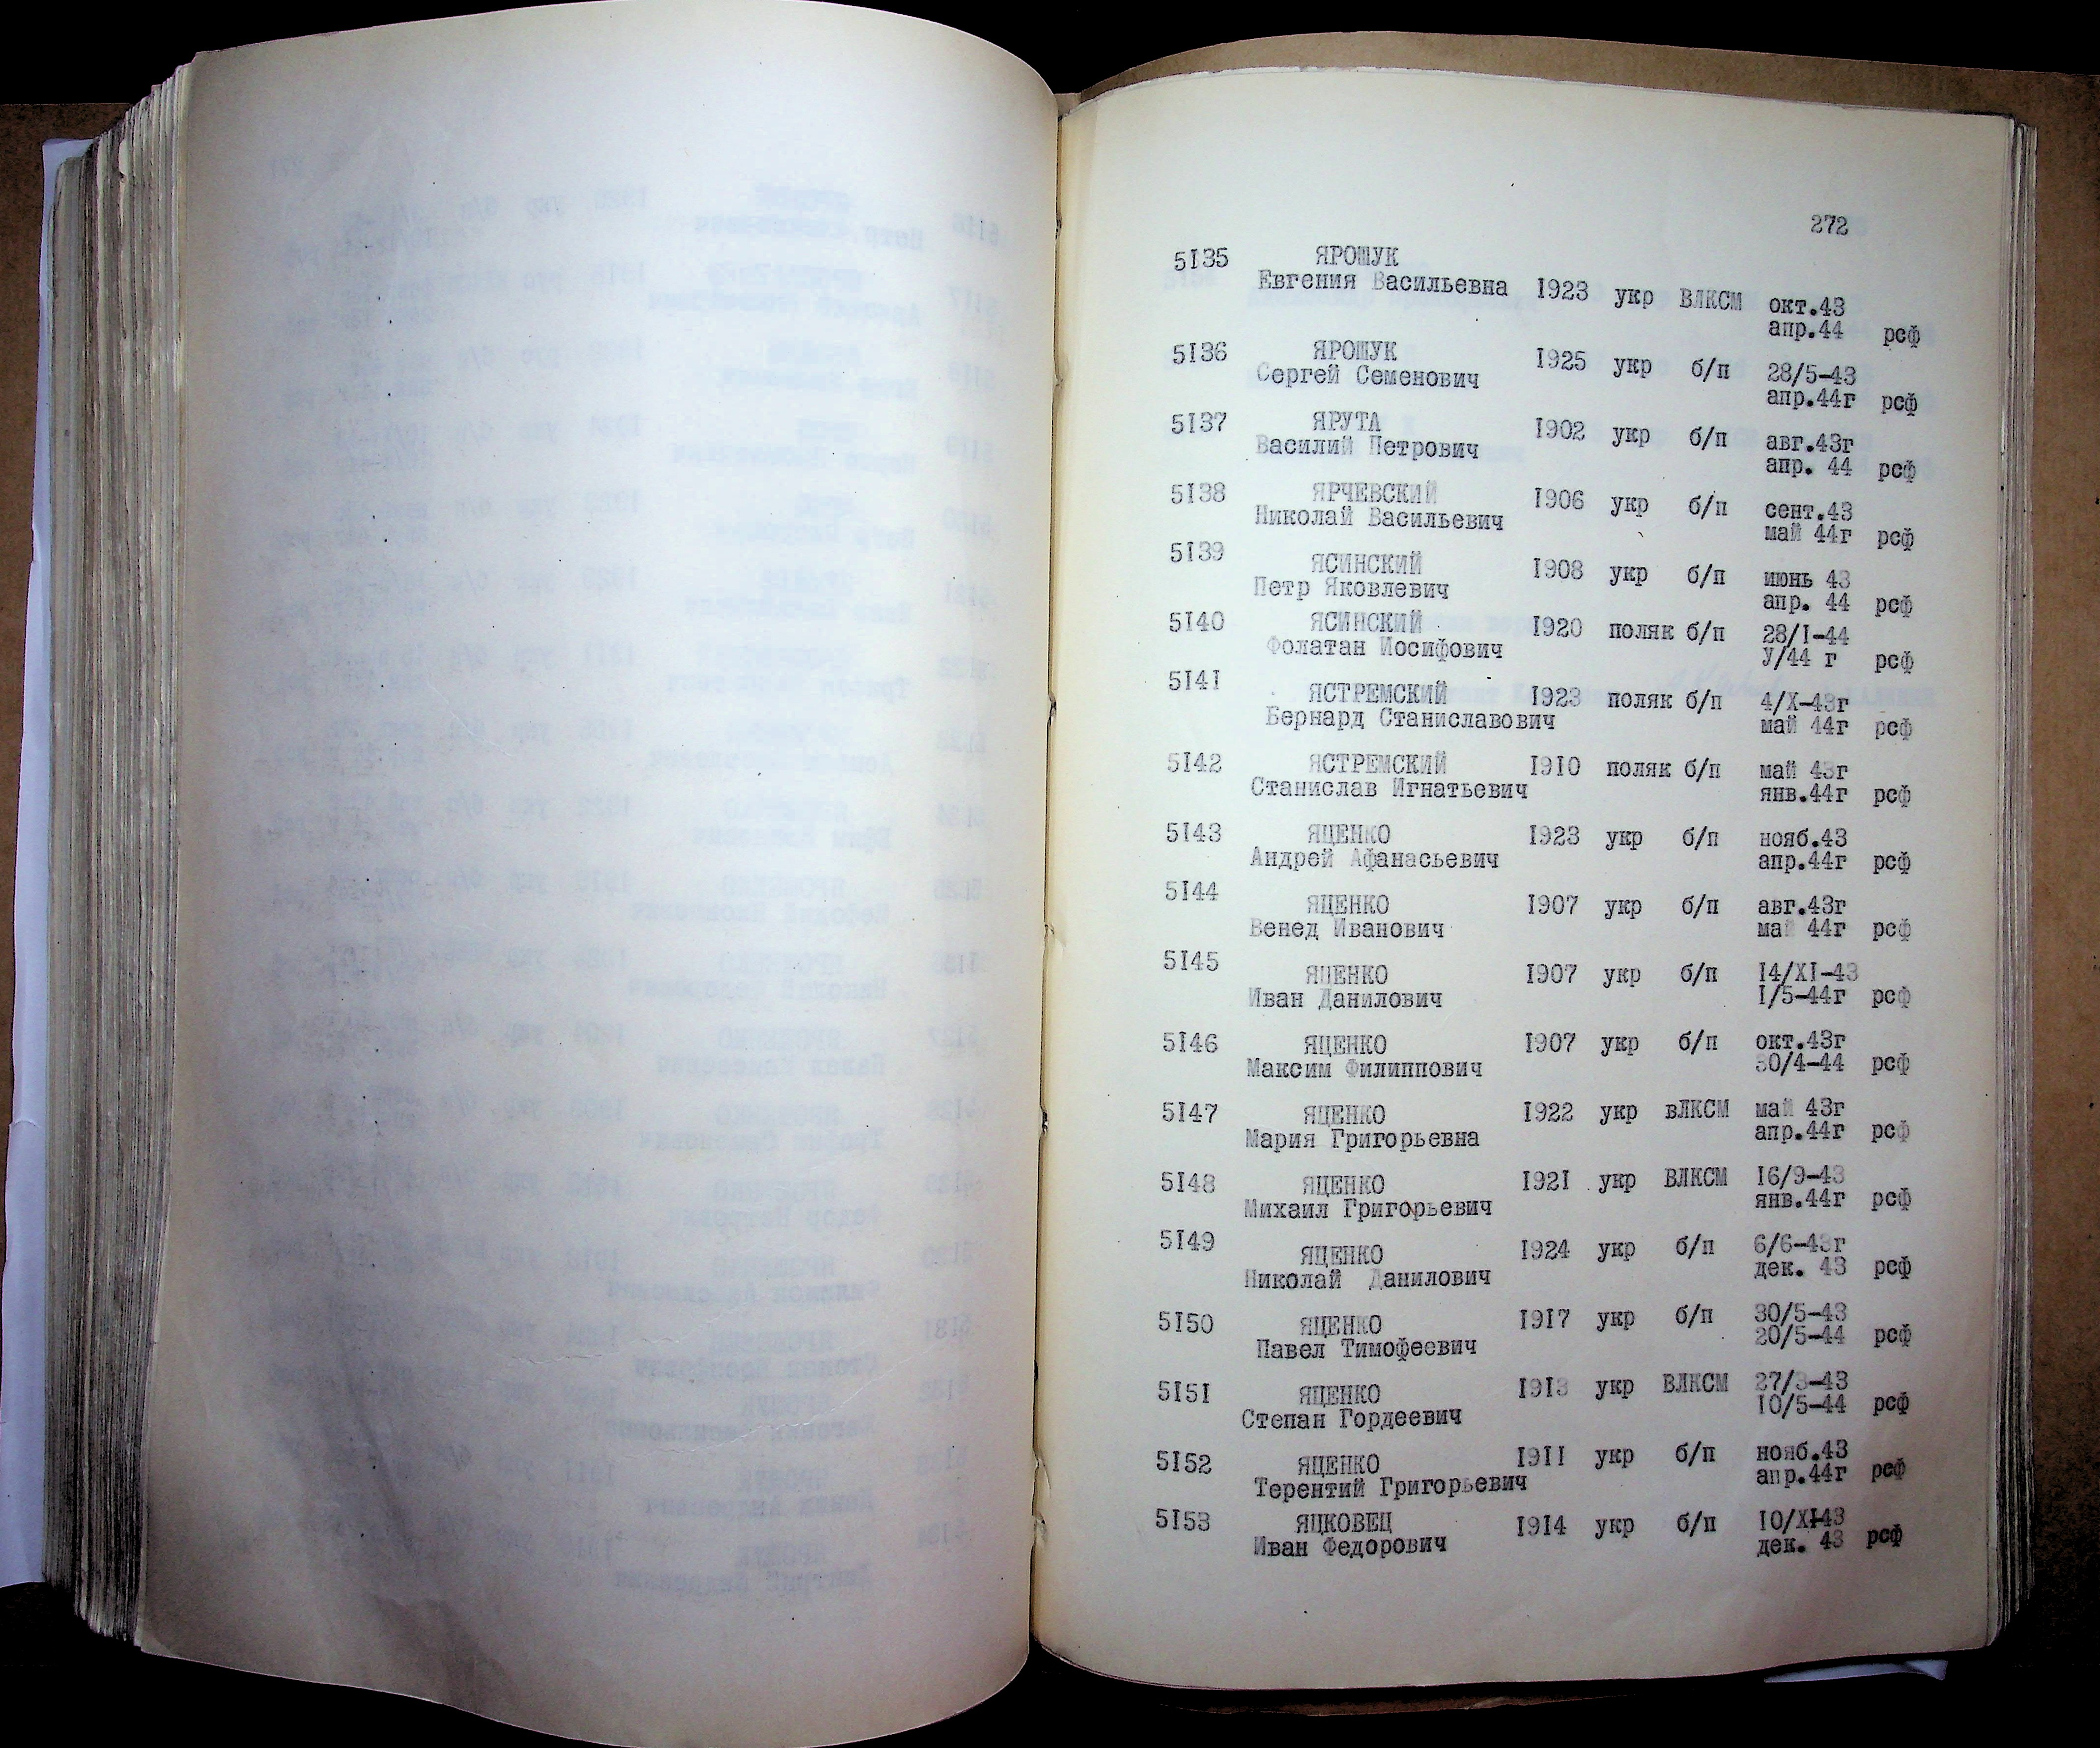 272
5I35 ЯРОЩУК
Евгения Васильевна I923 укр ВЛКСМ окт.43
апр.44 рсф
5I36 ЯРОЩУК I925 укр б/п 28/5-43
Сергей Семенович апр.44г рсф
5I37 ЯРУТА I902 укр б/п авг.43г
Василий Петрович апр. 44 рсф
5I38 ЯРЧЕВСКИЙ I906 укр б/п сент.43
Николай Васильевич май 44г рсф
5I39 ЯСИНСКИЙ I908 укр б/п июнь 43
Петр Яковлевич апр. 44 рсф
5I40 ЯСИНСКИЙ I920 поляк б/п 28/I-44
Фолатан Иосифович У/44 г рсф
5I4I ЯСТРЕМСКИЙ I923 поляк б/п 4/X-43г
Бернард Станиславович май 44г рсф
5I42 ЯСТРЕМСКИЙ I9I0 поляк б/п май 43г
Станислав Игнатьевич янв.44г рсф
5I43 ЯЦЕНКО I923 укр б/п нояб.43
Андрей Афанасьевич апр.44г рсф
5I44 ЯЦЕНКО I907 укр б/п авг.43г
Венед Иванович май 44г рсф
5I45 ЯЦЕНКО I907 укр б/п I4/XI-43
Иван Данилович I/5-44г рсф
5I46 ЯЦЕНКО I907 укр б/п окт.43г
Максим Филиппович 30/4-44 рсф
5I47 ЯЦЕНКО I922 укр вЛКСМ май 43г
Мария Григорьевна апр.44г рсф
5I48 ЯЦЕНКО I92I укр ВЛКСМ I6/9-43
Михаил Григорьевич янв.44г рсф
5I49 ЯЦЕНКО I924 укр б/п 6/6-43г
Николай Данилович дек. 43 рсф
5I50 ЯЦЕНКО I9I7 укр б/п 30/5-43
Павел Тимофеевич 20/5-44 рсф
5I5I ЯЦЕНКО I9I3 укр ВЛКСМ 27/3-43
Степан Гордеевич I0/5-44 рсф
5I52 ЯЦЕНКО I9II укр б/п нояб.43
Терентий Григорьевич апр.44г рсф
5I53 ЯЦКОВЕЦ I9I4 укр б/п I0/XI-43
Иван Федорович дек. 43 рсф